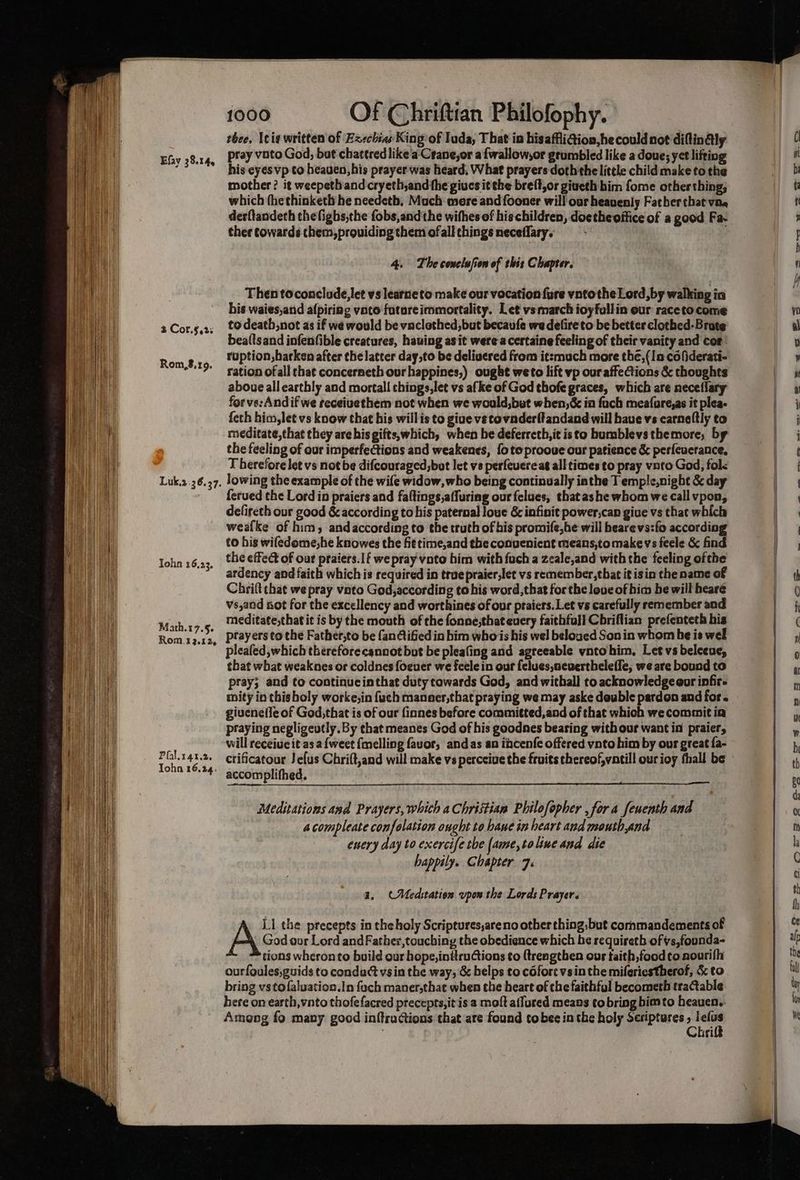 1000 Of Chriſtian Philoſophy.
thee. It is written of Ezechias King of Iuda, That in his affliction, he could not diſtinctly
Eſay 38.14.
pray vnto God, but chattred like a Crane, or a ſwallow, or grumbled like a doue; yet lifting
his eyes vp to heauen, his prayer was heard. What prayers doth the little child make to the
mother? it weepeth and cryeth, and ſhe giues it the breſt, or giueth him ſome other thing,
which ſhe thinketh he needeth. Much more and ſooner will our heauenly Father that vn-
derſtandeth the ſighs, the ſobs, and the wiſhes of his children, doe the office of a good Fa-
ther towards them, prouiding them of all things neceſſary.
4. The concluſion of this Chapter.
Then to conclude, let vs learne to make our vocation ſure vnto the Lord, by walking in
his waies, and aſpiring vnto future immortality. Let vs march ioyfull in our race to come
2 Cor.5,2.
to death, not as if we would be vnclothed, but becauſe we deſire to be better clothed. Brute
beaſts and inſenſible creatures, hauing as it were a certaine feeling of their vanity and cor-
Rom.8.19.
ruption, harken after the latter day, to be deliuered from it: much more thē, (In cōſiderati-
ration of all that concerneth our happines,) ought we to lift vp our affections & thoughts
aboue all earthly and mortall things, let vs aſke of God thoſe graces, which are neceſſary
for vs: And if we receiue them not when we would, but when, & in ſuch meaſure, as it plea-
ſeth him, let vs know that his will is to giue vs to vnderſtand and will haue vs earneſtly to
meditate, that they are his gifts, which, when he deferreth, it is to humble vs the more, by
the feeling of our imperfections and weakenes, ſo to prooue our patience & perſeuerance.
Therefore let vs not be diſcouraged, but let vs perſeuere at all times to pray vnto God, fol-
Luk.2.36.37.
lowing the example of the wiſe widow, who being continually in the Temple, night & day
ſerued the Lord in praiers and faſtings, aſſuring our ſelues, that as he whom we call vpon,
deſireth our good & according to his paternal loue & infinit power, can giue vs that which
we aſke of him, and according to the truth of his promiſe, he will heare vs: ſo according
to his wiſedome, he knowes the fit time, and the conuenient means, to make vs feele & find
Iohn 16.23.
the effect of our praiers. If we pray vnto him with ſuch a zeale, and with the feeling of the
ardency and faith which is required in true praier, let vs remember, that it is in the name of
Chriſt that we pray vnto God, according to his word, that for the loue of him he will heare
vs, and not for the excellency and worthines of our praiers. Let vs carefully remember and
Math.17.5.
meditate, that it is by the mouth of the ſonne, that euery faithfull Chriſtian preſenteth his
Rom.12.12,
prayers to the Father, to be ſanctified in him who is his wel beloued Son in whom he is wel
pleaſed, which therefore cannot but be pleaſing and agreeable vnto him. Let vs beleeue,
that what weaknes or coldnes ſoeuer we feele in our ſelues, neuertheleſſe, we are bound to
pray; and to continue in that duty towards God, and withall to acknowledge our infir-
mity in this holy worke, in ſuch manner, that praying we may aske double pardon and for-
giueneſſe of God, that is of our ſinnes before committed, and of that which we commit in
praying negligently. By that meanes God of his goodnes bearing with our want in praier,
will receiue it as a ſweet ſmelling ſauor, and as an incenſe offered vnto him by our great ſa-
Pſal.141.2.
crificatour Ieſus Chriſt, and will make vs perceiue the fruits thereof, vntill our ioy ſhall be
Iohn 16.24.
accompliſhed.
Meditations and Prayers, which a Chriſtian Philoſopher, for a ſeuenth and
a compleate conſolation ought to haue in heart and mouth, and
euery day to exerciſe the ſame, to liue and die
happily. Chapter 7.
1. Meditation vpon the Lords Prayer.
All the precepts in the holy Scriptures, are no other thing, but commandements of
God our Lord and Father, touching the obedience which he requireth of vs, founda-
tions wheron to build our hope, inſtructions to ſtrengthen our faith, food to nouriſh
our ſoules, guids to conduct vs in the way, & helps to cōfort vs in the miſeries therof, & to
bring vs to ſaluation. In ſuch maner, that when the heart of the faithful becometh tractable
here on earth, vnto thoſe ſacred precepts, it is a moſt aſſured means to bring him to heauen.
Among ſo many good inſtructions that are found to bee in the holy Scriptures, Ieſus
Chriſt